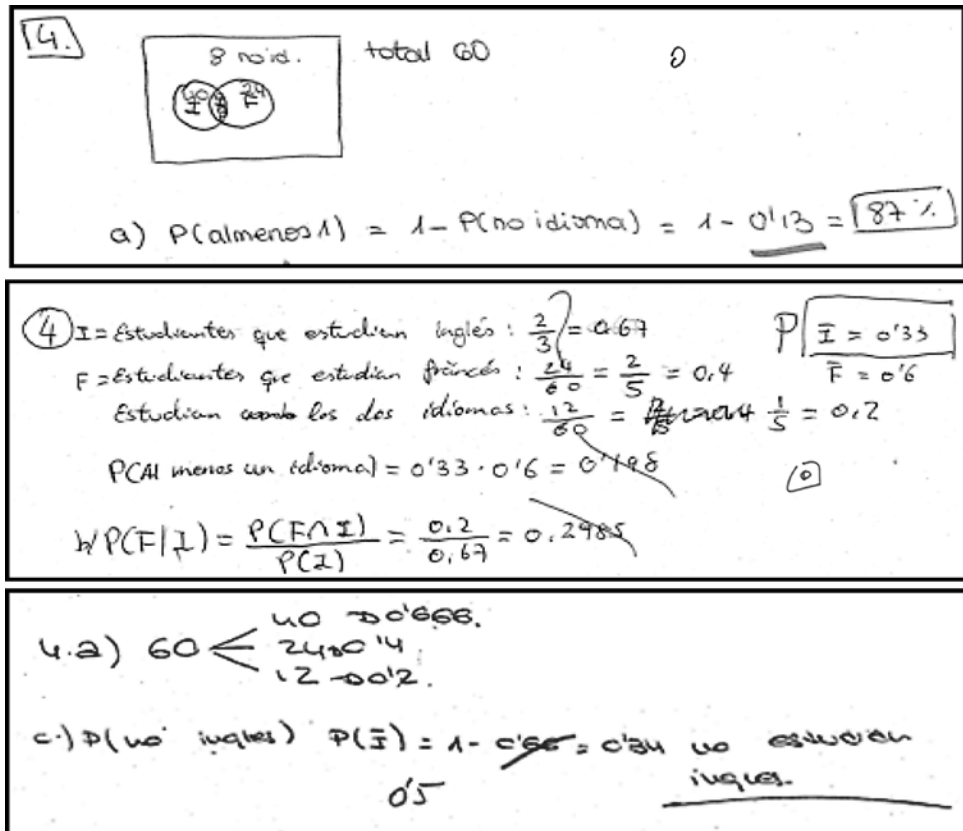 4.
8 noid. total 60 0
40 24
I F
a) P(almenos 1) = 1 - P(no idioma) = 1 - 0'13 = 87 %
4 I = Estudiantes que estudian inglés : 2/3 = 0.67 P Ī = 0'33
F = Estudiantes que estudian francés : 24/60 = 2/5 = 0.4 F̄ = 0'6
Estudian los dos idiomas : 12/60 = 1/5 = 0.2
P(Al menos un idioma) = 0'33 · 0'6 = 0'198 0
b) P(F|I) = P(F∩I)/P(I) = 0.2/0.67 = 0.2985
40 → 0'666.
4.a) 60 < 24 → 0'4
12 → 0'2.
c.) P(no ingles) P(Ī) = 1 - 0'66 = 0'34 no estudian
ingles.
0'5